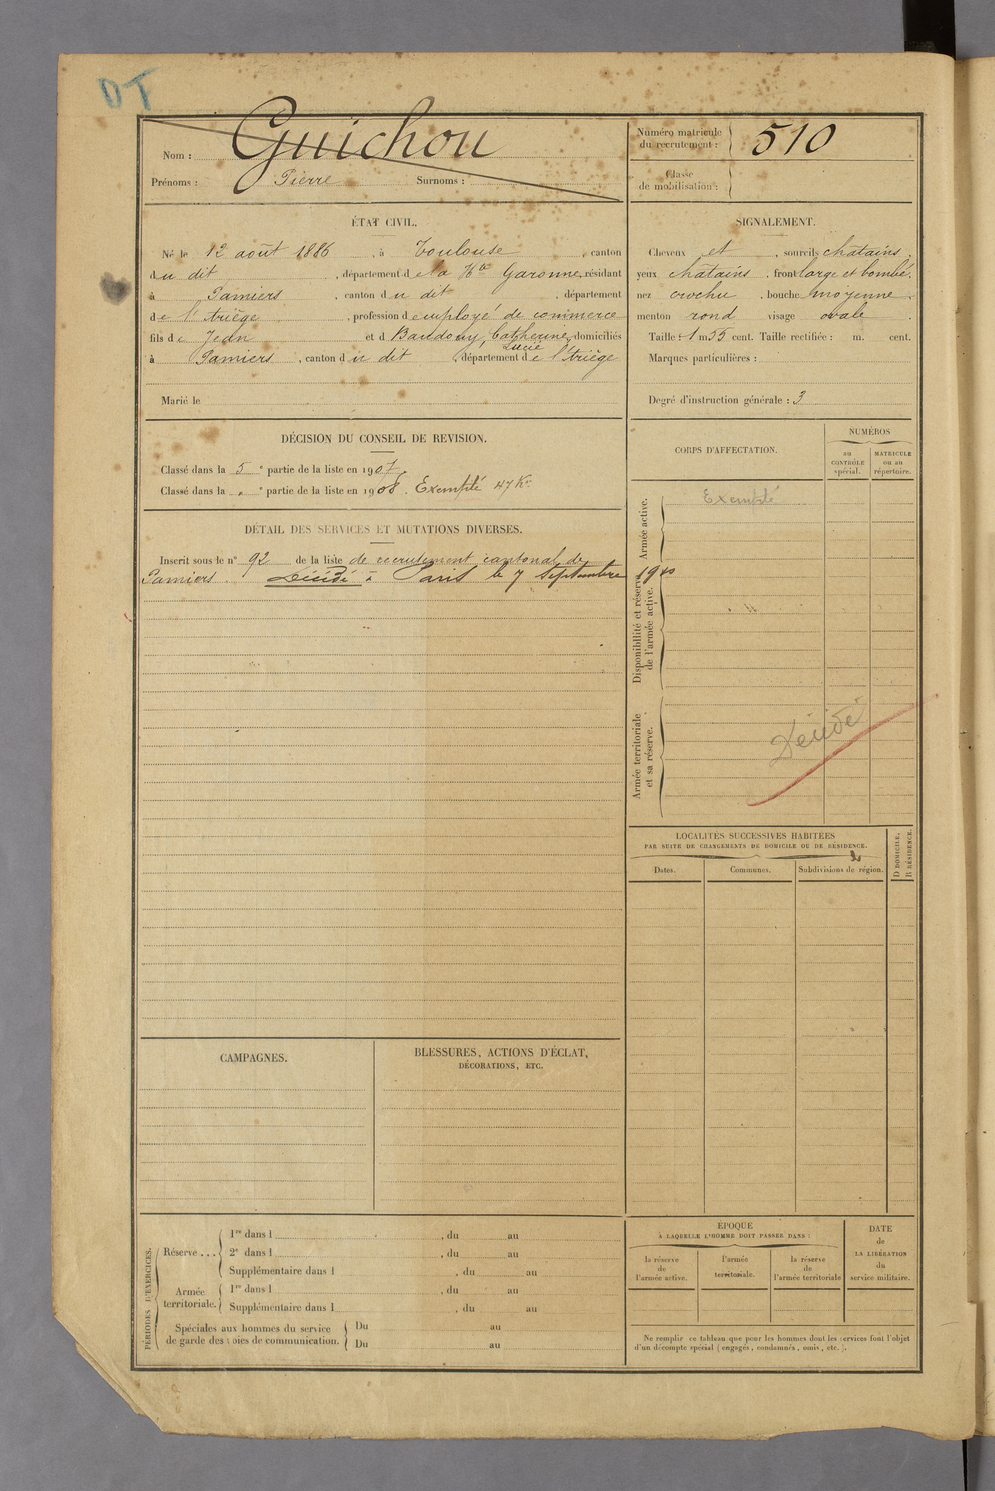 DT
Nom : Guichou
Prénoms : Pierre Surnoms :
Numéro matricule du recrutement : 510
Classe de mobilisation :
ÉTAT CIVIL.
Né le 12 août 1886, à Toulouse, canton
du dit, département de la Hte Garonne, résidant
à Pamiers, canton du dit, département
de l'Ariège, profession d'employé de commerce
fils de Jean et de Baudouy, Catherine, Lucie domiciliés
à Pamiers, canton du dit département de l'Ariège
Marié le
SIGNALEMENT.
Cheveux et, sourcils châtains,
yeux châtains, front large et bombé,
nez crochu, bouche moyenne,
menton rond visage ovale.
Taille : 1 m 55 cent. Taille rectifiée : m. cent.
Marques particulières :
Degré d'instruction générale : 3
DÉCISION DU CONSEIL DE REVISION.
Classé dans la 5e partie de la liste en 1907.
Classé dans la " e partie de la liste en 1908. Exempté 47 Kos
DÉTAIL DES SERVICES ET MUTATIONS DIVERSES.
Inscrit sous le n° 92 de la liste de recrutement cantonal de
Pamiers. Décédé à Paris le 7 septembre 1940
CORPS D'AFFECTATION.
NUMÉROS
au CONTRÔLE spécial.
MATRICULE ou au répertoire.
Armée active.
Exempté
Disponibilité et réserve de l'armée active.
Armée territoriale et sa réserve.
Décédé
LOCALITÉS SUCCESSIVES HABITÉES
PAR SUITE DE CHANGEMENTS DE DOMICILE OU DE RÉSIDENCE.
Dates. Communes. Subdivisions de région.
D DOMICILE. R RÉSIDENCE.
CAMPAGNES.
BLESSURES, ACTIONS D'ÉCLAT,
DÉCORATIONS, ETC.
PÉRIODES D'EXERCICES.
Réserve ...
1re dans l , du au
2e dans l , du au
Supplémentaire dans l , du au
Armée territoriale.
1re dans l , du au
Supplémentaire dans l , du au
Spéciales aux hommes du service
de garde des voies de communication.
Du au
Du au
ÉPOQUE
À LAQUELLE L'HOMME DOIT PASSER DANS :
la réserve de l'armée active.
l'armée territoriale.
la réserve de l'armée territoriale
DATE
de
LA LIBÉRATION
du
service militaire.
Ne remplir ce tableau que pour les hommes dont les services font l'objet
d'un décompte spécial (engagés, condamnés, omis, etc.).